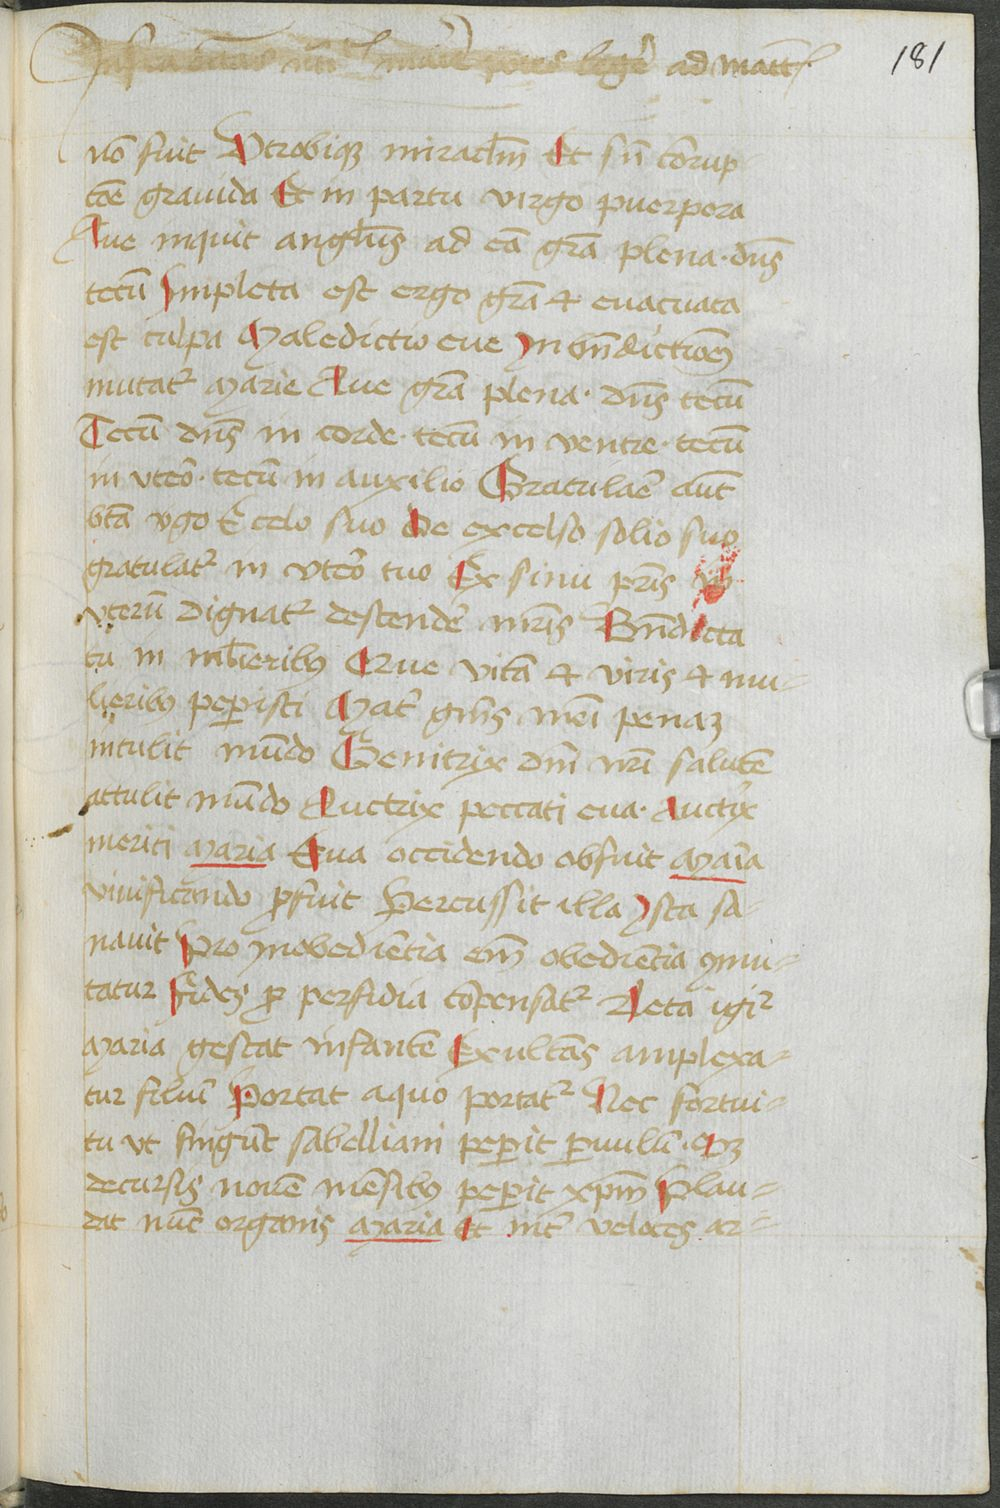 ad matt
181
nō fuit Vtrobiqꝫ miraclm̄ Et sñ corrup-
cōe grauida Et in partu virgo puerpora
Aue inquit angl̄us ad eā grā plena · dn̄s
tecū Impleta est ergo grā & euacuata
est culpa Maledictio eue In bn̄dictionē
mutatᷣ Marie Aue grā plena · dn̄s tecū
Tecū dn̄s in corde · tecū in ventre · tecū
in vtēo · tecū in auxilio Gratulaē aut̄
bt̄a vgo E celo suo De excelso solio suo
gratulatᷣ in vtēo tuo Ex sinu pr̄is
vterū dignatᷣ descendē mr̄is Bn̄dicta
tu in ml̄ieribꝫ Que vitā & viris & mu-
lieribꝫ peꝑisti Matᷣ gn̄is nr̄i penaꝫ
intulit mūdo Genitrix dn̄i nr̄i salutē
attulit mūdo Auctrix peccati eua · Auctᷣx
meriti Maria Eua occidendo obfuit Maīa
viuificando ꝓfuit Percussit illa Ista sa-
nauit Pro inobediētia em̄ obediētia ꝯmu-
tatur Fides ꝓ perfidia cōpensatᷣ Leta igiᷣ
Maria gestat infantē Exultās amplexa-
tur filiū Portat aquo portatᷣ Nec fortui-
tu vt fingūt sabelliani peꝑit ꝑuulū · Qꝫ
decursis nouē mēsibꝫ peꝑit xp̄m Plau-
dat nūc organis Maria Et intᷣ veloces ar-